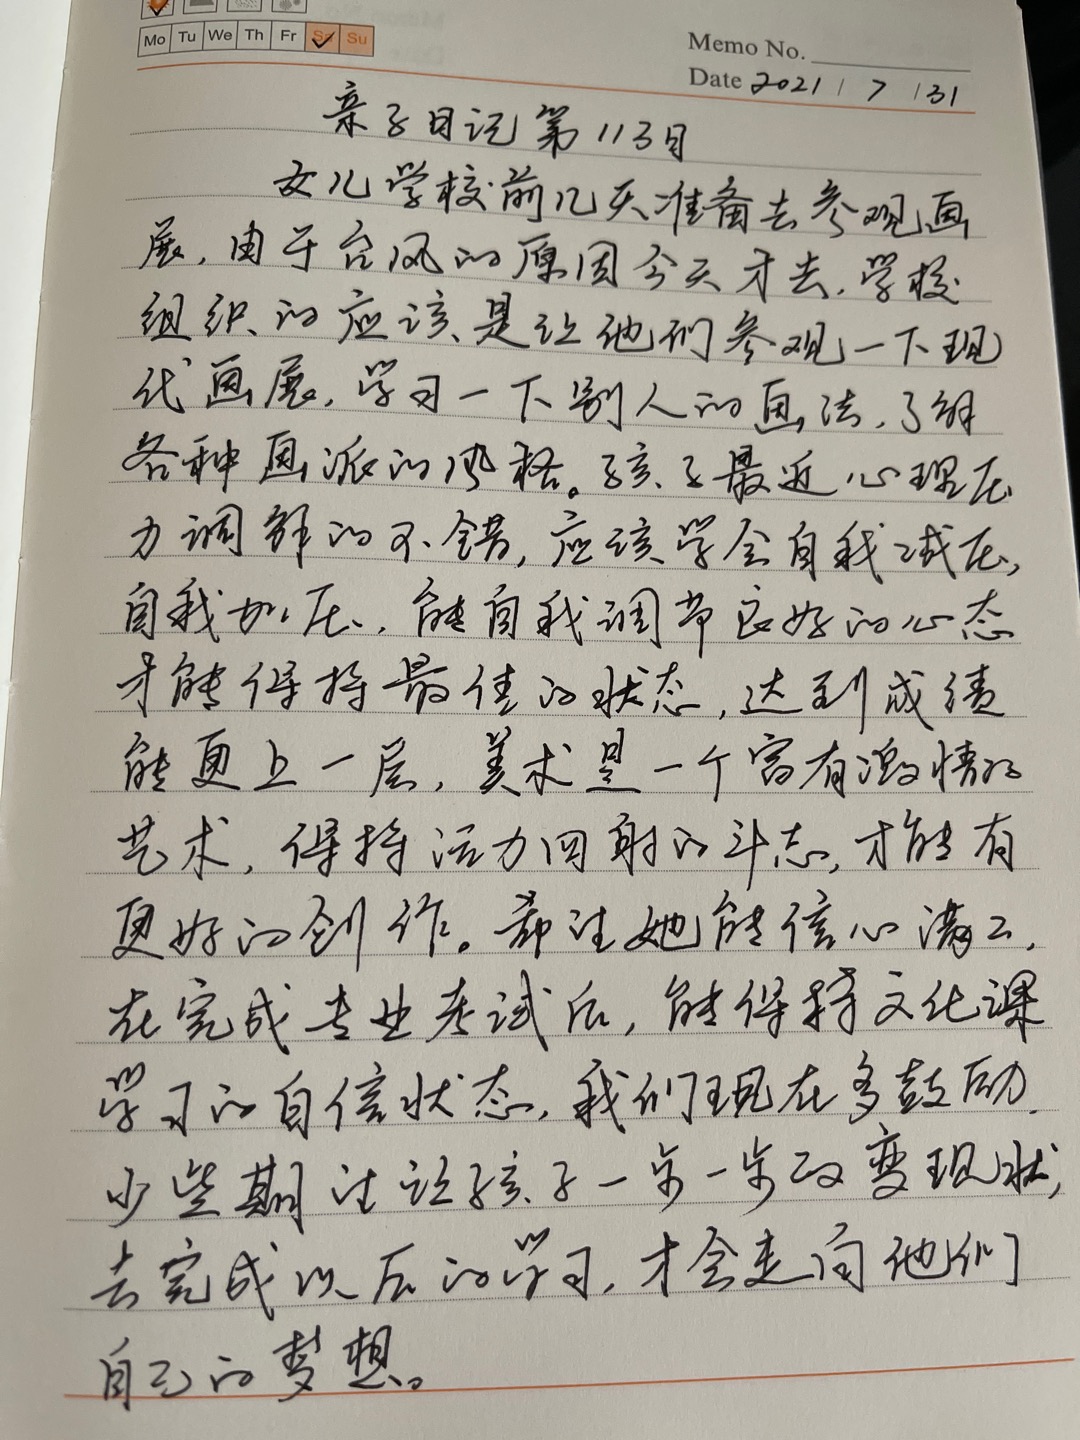 Mo Tu We Th Fr Sa Su
Memo No.
Date 2021 / 7 / 31
亲子日记第113日
女儿学校前几天准备去参观画
展,由于台风的原因今天才去,学校
组织的应该是让他们参观一下现
代画展,学习一下别人的画法,了解
各种画派的风格。孩子最近心理压
力调解的不错,应该学会自我减压,
自我加压,能自我调节良好的心态
才能保持最佳的状态,达到成绩
能更上一层,美术是一个富有激情的
艺术,保持活力四射的斗志,才能有
更好的创作。希望她能信心满满,
在完成专业考试后,能保持文化课
学习的自信状态,我们现在多鼓励,
少些期望让孩子一步一步改变现状,
去完成以后的学习,才会走向他们
自己的梦想。